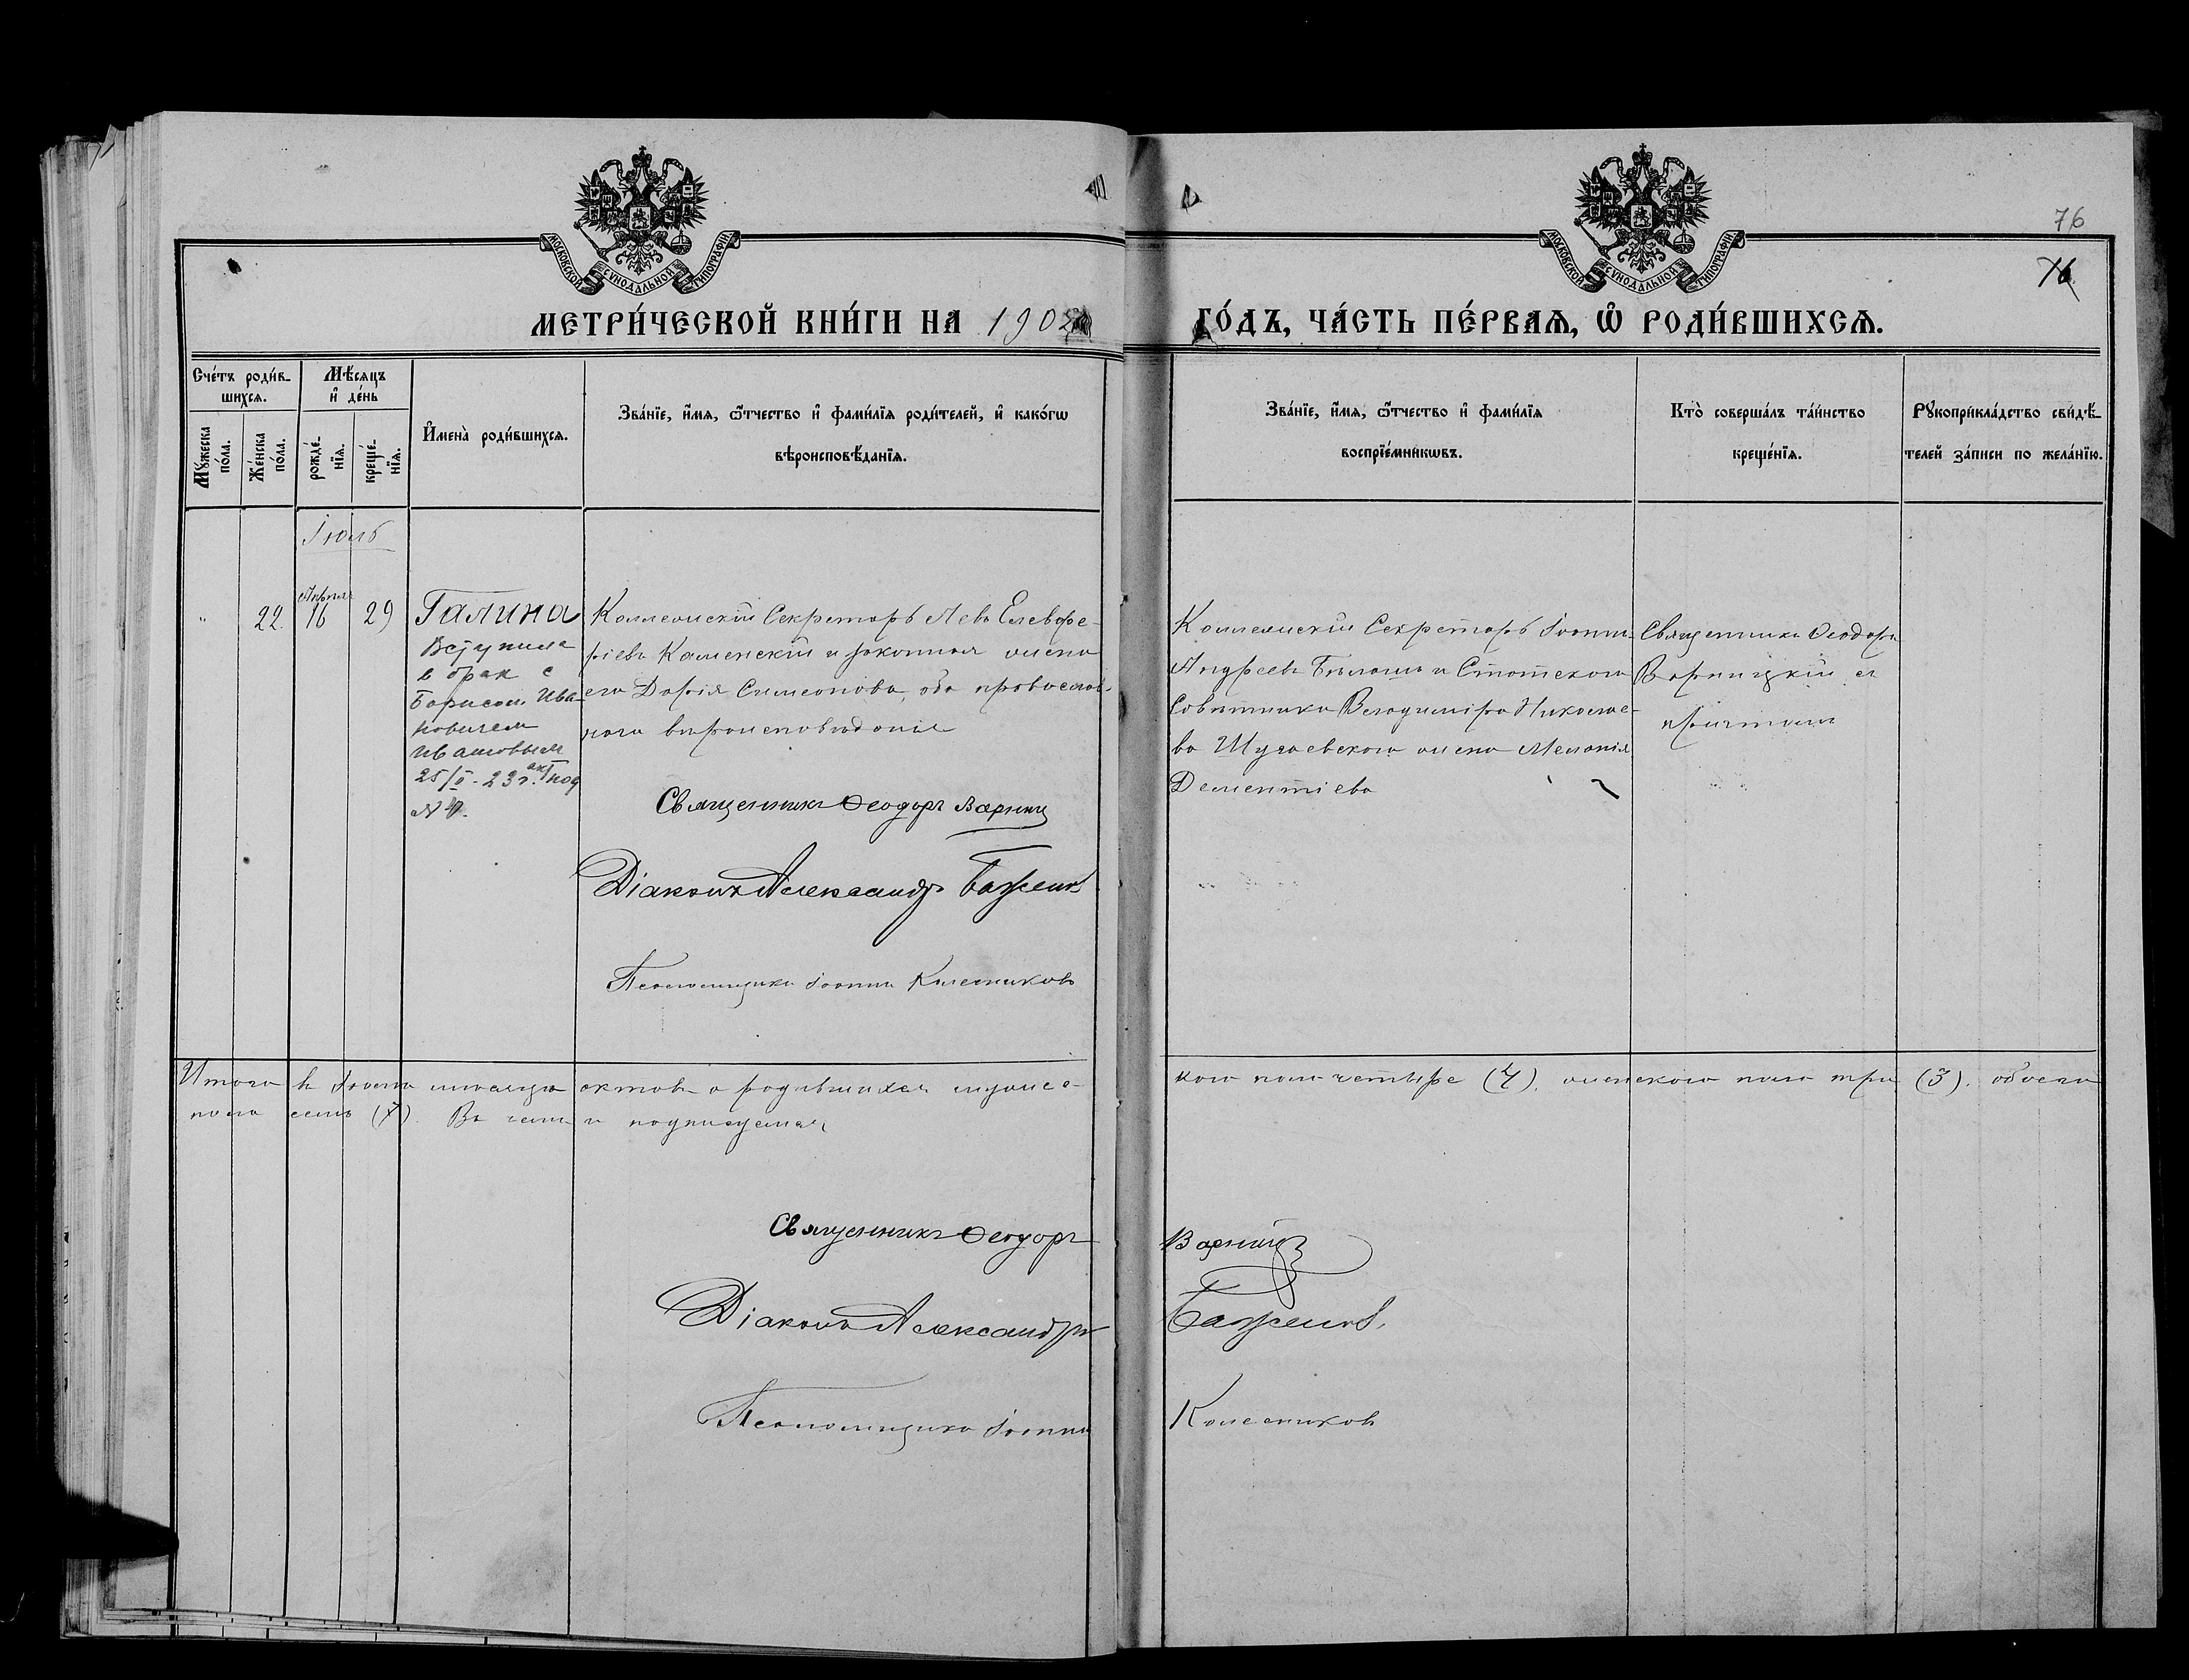 76
76
МОСКОВСКОЙ СѴНОДАЛЬНОЙ ТИПОГРАФІИ
МОСКОВСКОЙ СѴНОДАЛЬНОЙ ТИПОГРАФІИ
МЕТРИ́ЧЕСКОЙ КНИ́ГИ НА 190
ГО́ДЪ, ЧА́СТЬ ПЕ́РВАѦ, Ѽ РОДИ́ВШИХСѦ.
Сче́тъ роди́в-
шихсѧ.
Мꙋжеска по́ла.
Же́нска по́ла.
Мѣ́сѧцъ
и҆ де́нь
рожде́-нїѧ.
креще́-нїѧ.
И҆мена̀ роди́вшихсѧ.
Зва́нїе, и҆́мѧ, ѻ҆́тчество и҆ фами́лїѧ роди́телей, и҆ како́гѡ
вѣроисповѣ́данїѧ.
Зва́нїе, и҆́мѧ, ѻ҆́тчество и҆ фами́лїѧ
воспрїе́мникѡвъ.
Кто̀ соверша́лъ та́инство
креще́нїѧ.
Рꙋкоприкла́дство свидѣ́-
телей за́писи по жела́нїю.
Іюль
" 22. Апрѣля 16 29 Галина
Вступила
в брак с
Борисом Ива-
новичем
Ивашовым
25/II-23 г. акт под
N
Коллежскій Секретарь Левъ Елевфе-
ріевъ Каменскій и законная жена
его Дарія Симеонова, оба православ-
наго вѣроисповѣданія
Священникъ Ѳеодоръ Варниц
Діаконъ Александръ Баженов
Псаломщикъ Іоаннъ Колесниковъ
Коллежскій Секретарь Іоаннъ
Андреевъ Бѣлашъ и Статскаго
Совѣтника Владиміра Николае-
ва жена Меланія
Дементіева
Священникъ Ѳеодоръ
Варницкій съ
причтомъ
Итого въ Іюлѣ мѣсяцѣ актовъ о родившихся мужес-
каго пола четыре (4). женскаго пола три (3). обоего
пола семь (7). Въ чемъ и подписуемся
Священникъ Ѳеодоръ Варниц
Діаконъ Александръ Баженовъ.
Псаломщикъ Іоаннъ Колесниковъ